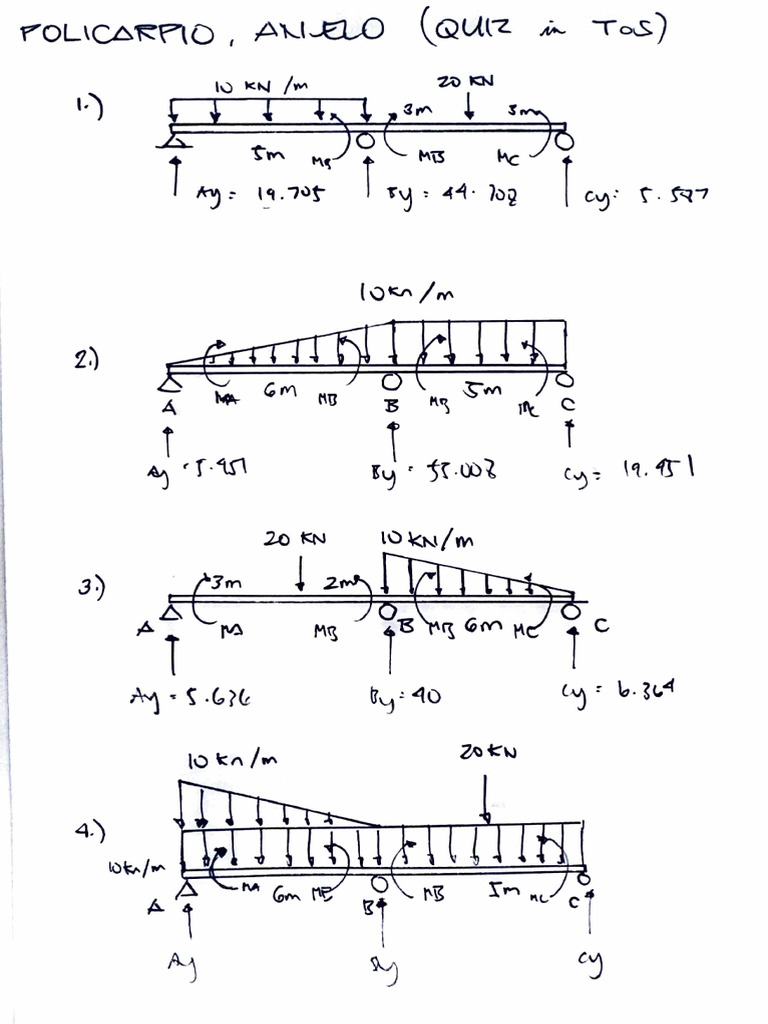 POLICARPIO, ANJELO (QUIZ in TOS)
1.)
10 KN/m
20 KN
3m
3m
5m
MB
MB
MC
Ay = 19.705
By = 44.708
Cy = 5.587
10 kn/m
2.)
MA
6m
MB
MB
5m
MC
A
B
C
Ay = 5.451
By = 55.008
Cy = 19.451
20 KN
10 KN/m
3.)
3m
2m
A
MA
MB
B
MB
6m
MC
C
Ay = 5.636
By = 40
Cy = 6.364
10 kn/m
20 KN
4.)
10 kn/m
A
MA
6m
MB
B
MB
5m
MC
C
Ay
By
Cy